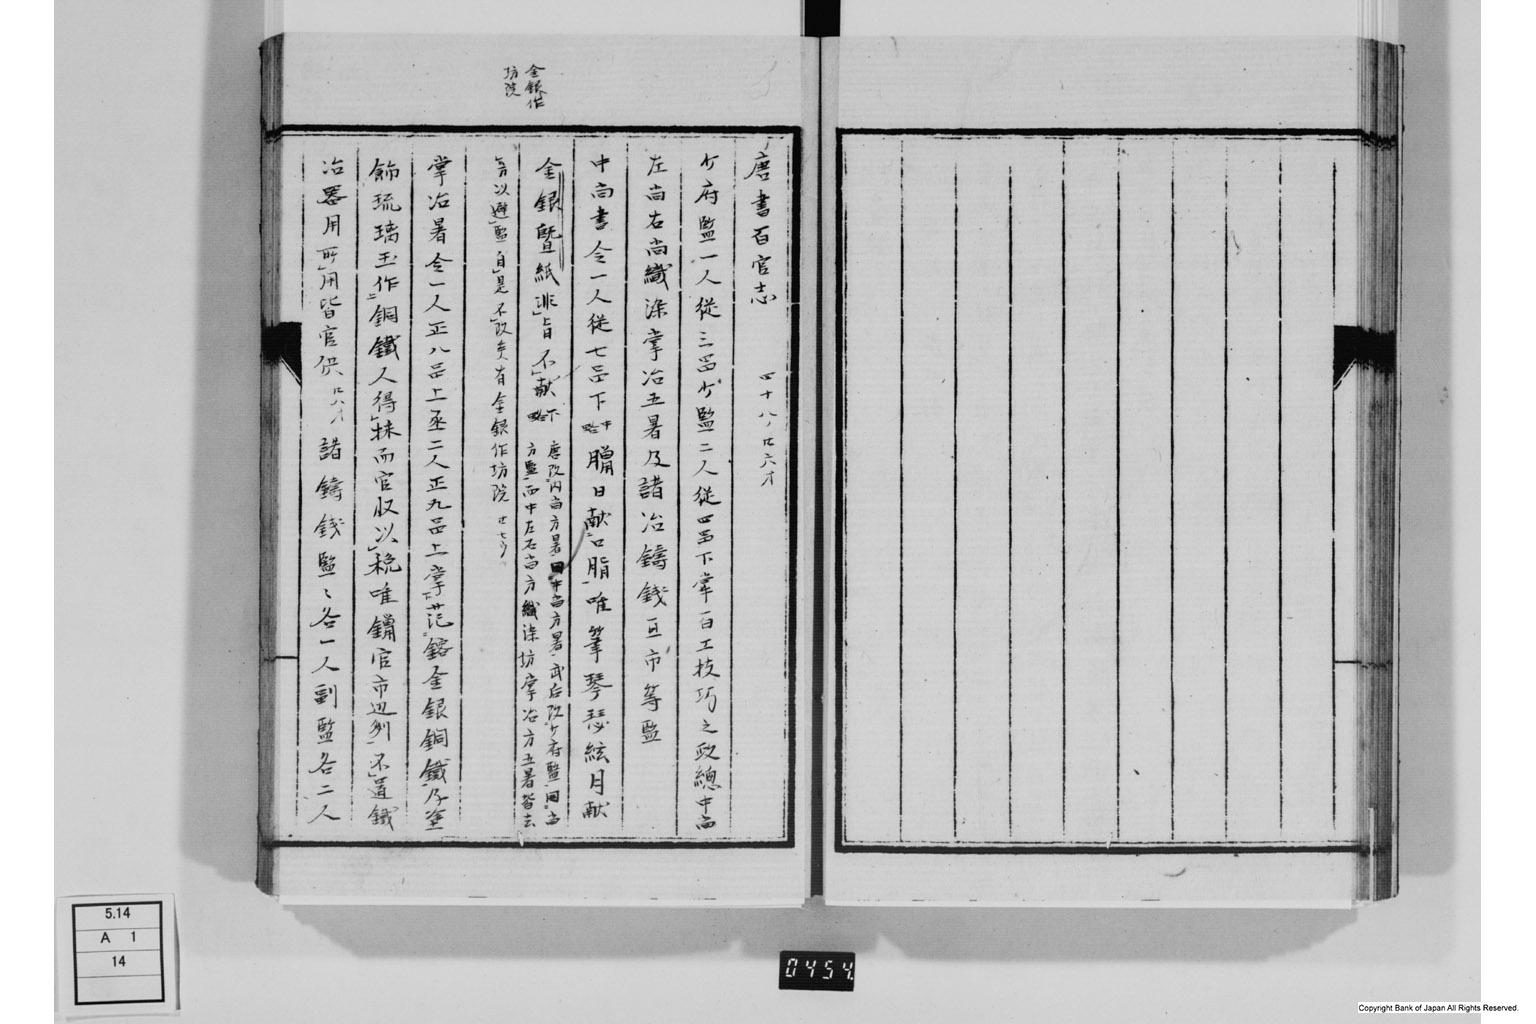 金銀作
坊院
唐書百官志 四十八ノ廿六オ
少府監一人從三品少監二人從四品下掌百工技巧之政總中尚
左尚右尚織染掌冶五署及諸冶鑄錢互市等監
中尚書令一人從七品下 中略 臘日献口脂唯筆琴瑟絃月献
金銀曁紙非旨不献 下略 唐改内尚方署曰中尚方署武后改少府監曰尚
方監而中左右尚方織染坊掌冶方五署皆去
方以避監自是不改矣有金銀作坊院 廿七ウ
掌冶署令一人正八品上丞二人正九品上掌范鎔金銀銅鐵及塗
飾琉璃玉作銅鐵人得採而官收以稅唯鑞官市辺州不置鐵
冶器用所用皆官供 廿八オ 諸鑄錢監〻各一人副監各二人
5.14
A 1
14
0454
Copyright Bank of Japan All Rights Reserved.